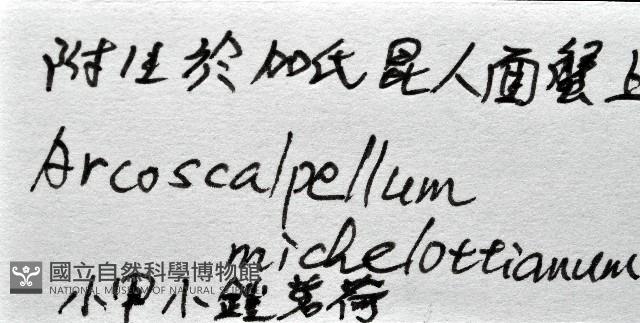 附生於加氏昆人面蟹上
Arcoscalpellum
michelottianum
國立自然科學博物館
NATIONAL MUSEUM OF NATURAL SCIENCE
小甲小鎧茗荷